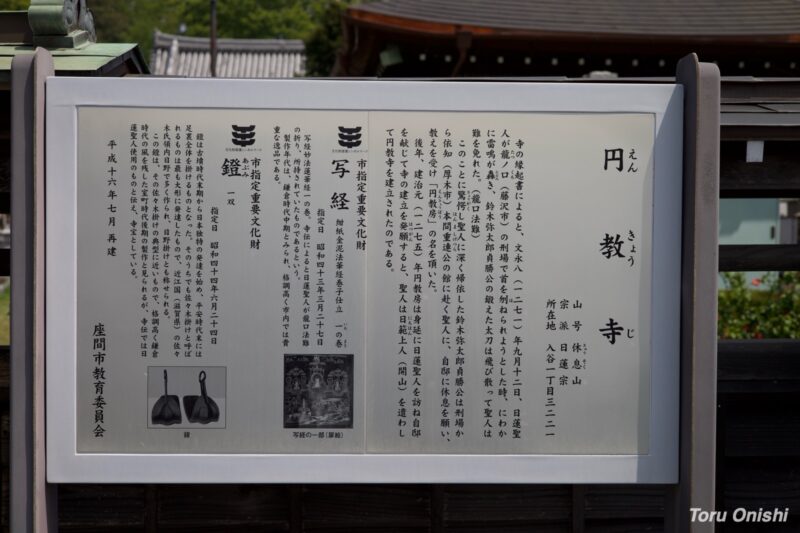 円教寺
えんきょうじ
山号 休息山
宗派 日蓮宗
所在地 入谷一丁目三二二一
寺の縁起書によると、文永八（一二七一）年九月十二日、日蓮聖
人が龍ノ口（藤沢市）の刑場で首を刎ねられようとした時、にわか
に雷鳴が轟き、鈴木弥太郎貞勝公の鍛えた太刀は飛び散って聖人は
難を免れた。（龍口法難）
このことに驚愕し聖人に深く帰依した鈴木弥太郎貞勝公は刑場か
ら依知（厚木市）本間重連公の館に赴く聖人に、自邸に休息を願い、
教えを受け「円教房」の名を頂いた。
後年、建治元（一二七五）年円教房は身延に日蓮聖人を訪ね自邸
を献じて寺の建立を発願すると、聖人は日範上人（開山）を遣わし
て円教寺を建立されたのである。
市指定重要文化財
写経 紺紙金泥法華経巻子仕立 一の巻
指定日 昭和四十三年三月二十七日
写経妙法蓮華経一の巻。寺伝によると日蓮聖人が龍口法難
の折り、所持されていたものであるという。
製作年代は、鎌倉時代中期とみられ、格調高く市内では貴
重な逸品である。
写経の一部（扉絵）
市指定重要文化財
鐙 一双
あぶみ
指定日 昭和四十四年六月二十四日
鐙は古墳時代末期から日本独特の発達を始め、平安時代末には
足裏全体を掛けるものとなった。そのうちでも佐々木掛けと呼ば
れるものは最も大形に発達したもので、近江国（滋賀県）の佐々
木氏領内日野で多く作られ、日野掛けとも称せられる。
この鐙は、その佐々木掛けの典型に近いもので、格調高く鎌倉
時代の風を残した室町時代後期の製作と見られるが、寺伝では日
蓮聖人使用のものと伝え、寺宝としている。
鐙
平成十六年七月 再建
座間市教育委員会
Toru Onishi